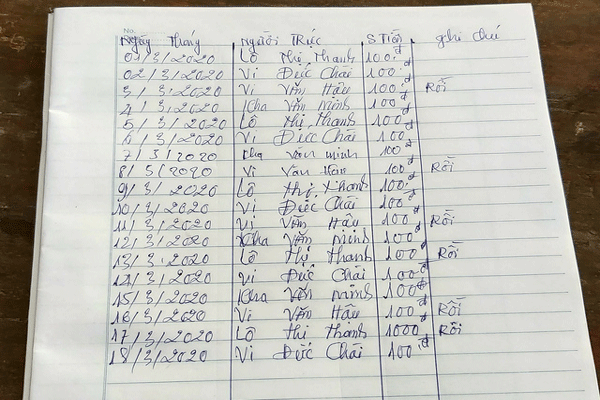 No.
Ngày tháng Người Trực S Tiền ghi chú
01/3/2020 Lô Thị Thanh 100.đ
02/3/2020 Vi Đức Chài 100.đ
3/3/2020 Vi Văn Hậu 100.đ Rồi
4/3/2020 Kha Văn Minh 100.đ
5/3/2020 Lô Thị Thanh 100.đ
6/3/2020 Vi Đức Chài 100.đ
7/3/2020 Kha Văn minh 100đ
8/3/2020 Vi Văn Hậu 100đ Rồi
9/3/2020 Lô Thị Thanh 100.đ
10/3/2020 Vi Đức Chài 100.đ
11/3/2020 Vi Văn Hậu 100đ Rồi
12/3/2020 Kha Văn Minh 100đ
13/3/2020 Lô Thị Thanh 100đ Rồi
14/3/2020 Vi Đức Chài 100đ
15/3/2020 Kha Văn Minh 100đ
16/3/2020 Vi Văn Hậu 100đ Rồi
17/3/2020 Lô Thị Thanh 1000đ Rồi
18/3/2020 Vi Đức Chài 100đ